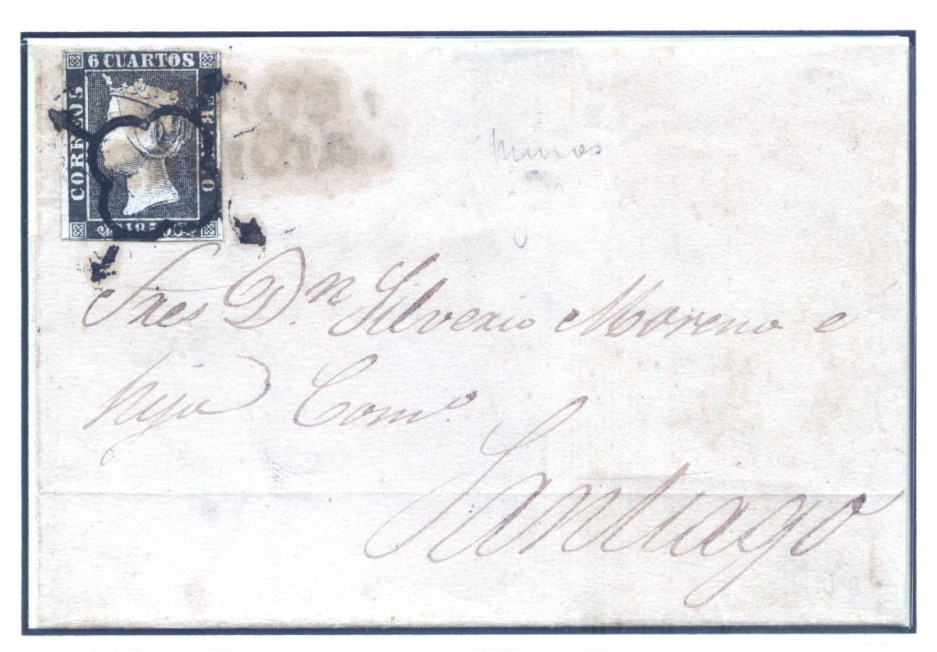 6 CUARTOS
CORREOS
FRANCO
1850
Sres Dn. Silverio Moreno e
hijo Como.
Santiago